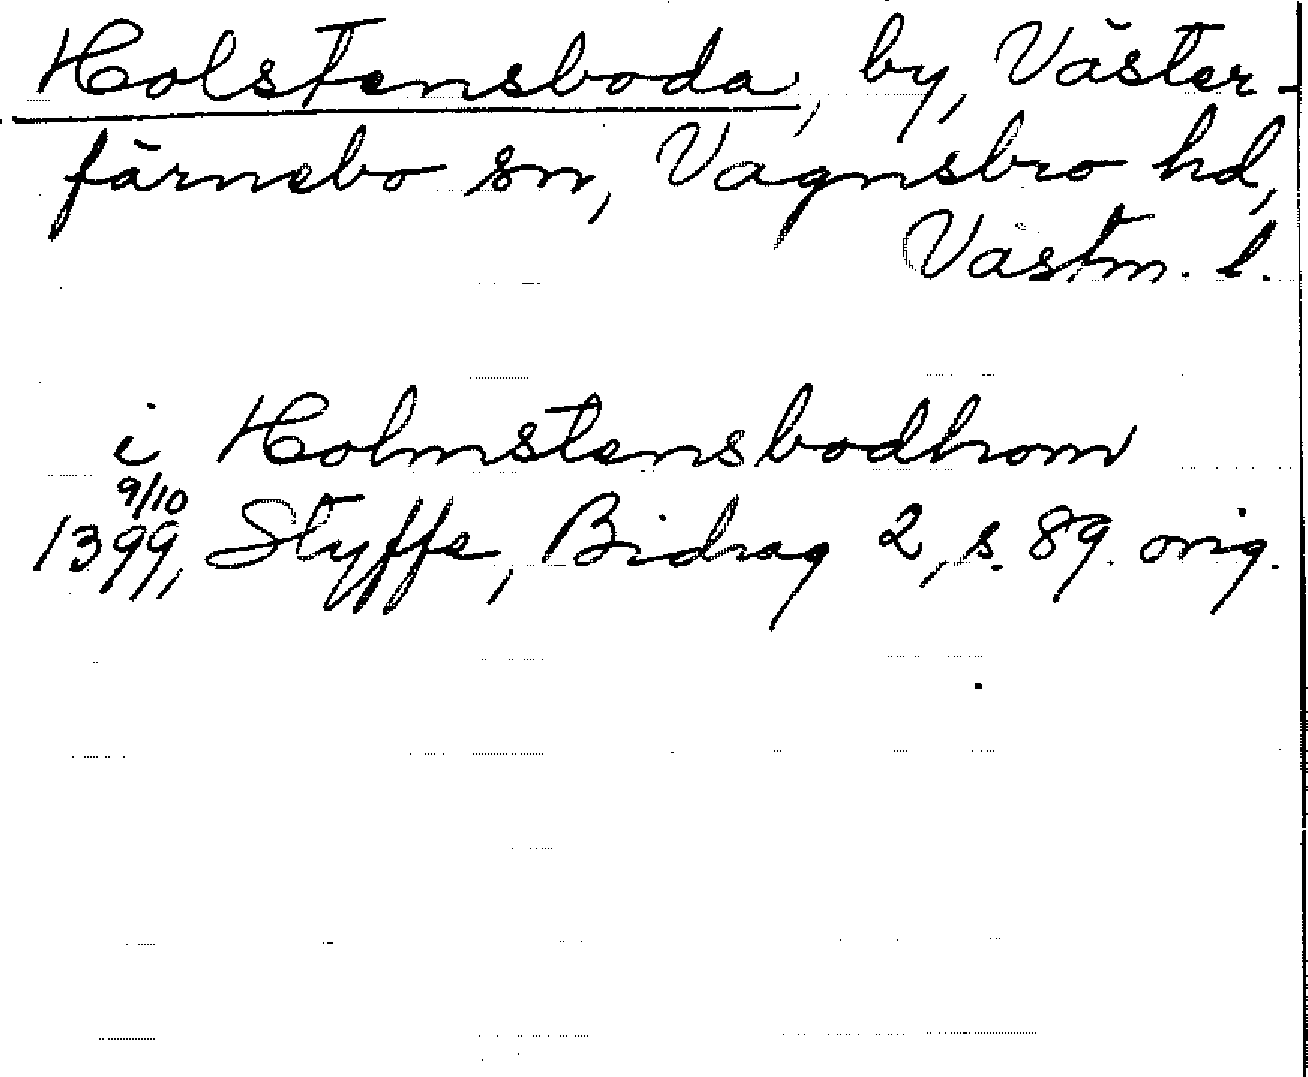 Holstensboda, by, Väster-
färnebo sn, Vagnsbro hd,
Västm. l.
i Holmstensbodhom
9/10
1399, Styffe, Bidrag 2, s. 89. orig.